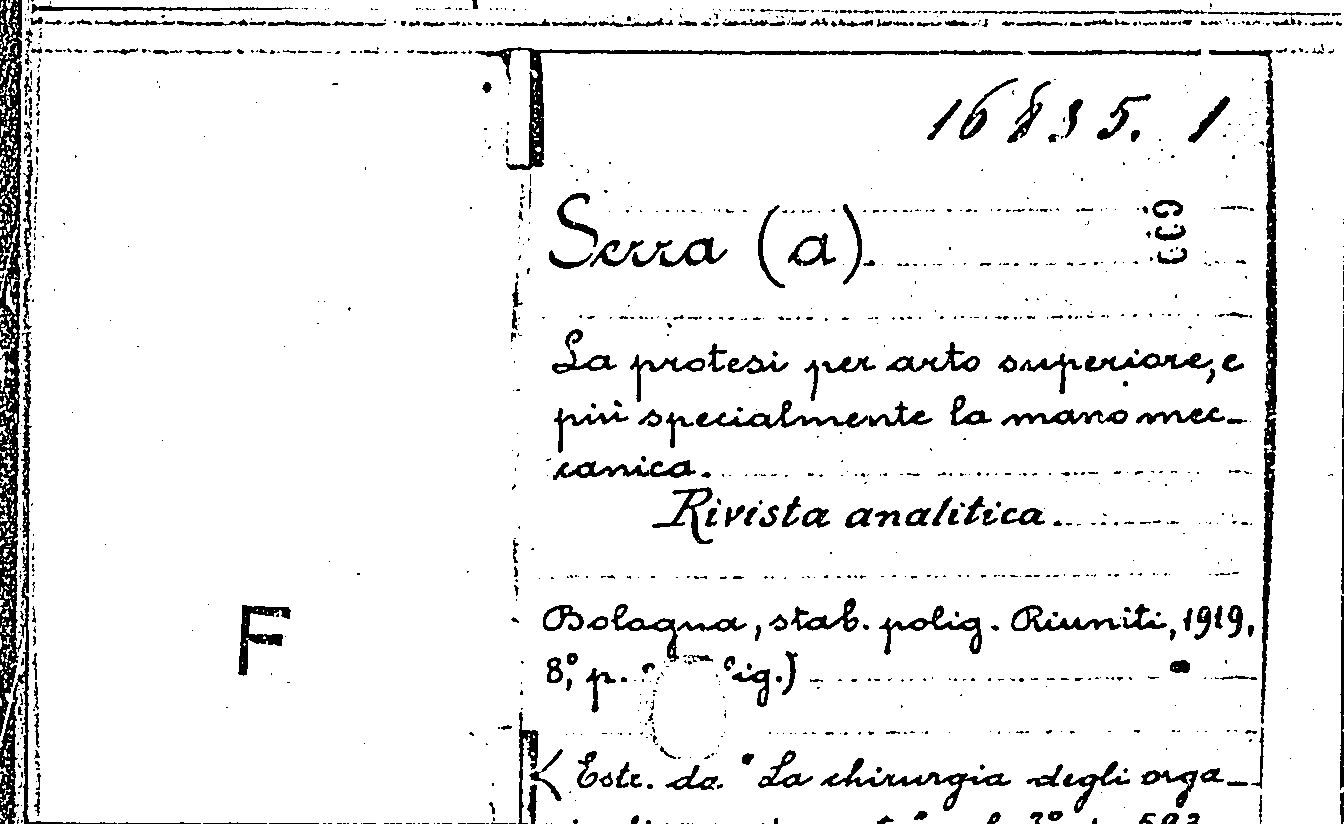 16835. 1
Serra (a).
La protesi per arto superiore, e
più specialmente la mano mec-
canica.
Rivista analitica.
F
Bologna, stab. polig. Riuniti, 1919,
8°, p. fig.)
Estr. da "La chirurgia degli orga-